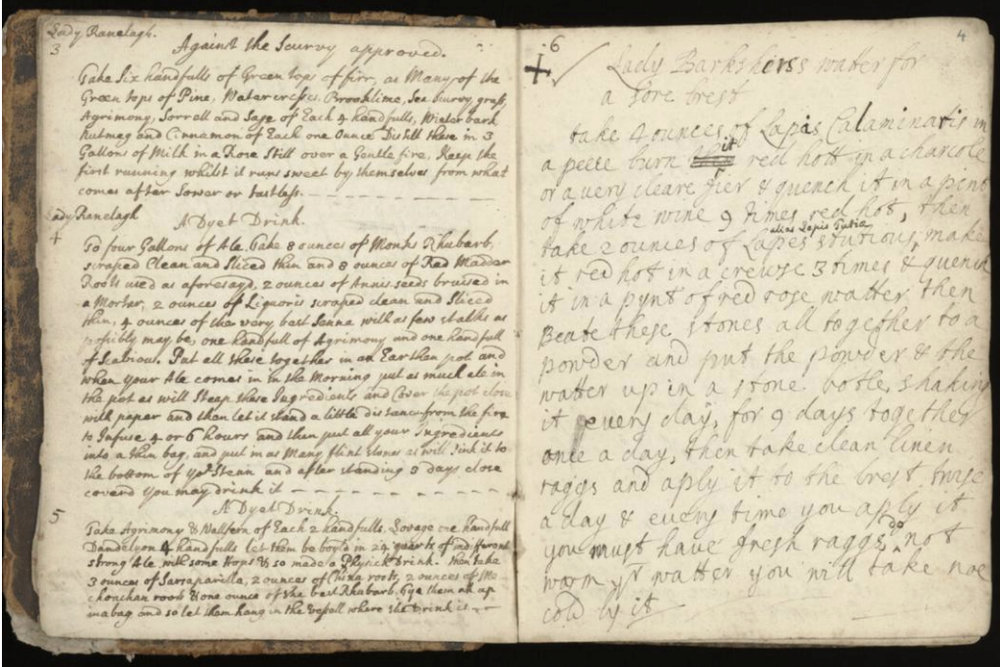 Lady Ranelagh.
3 Against the Scurvy approved.
Take Six handfulls of Green tops of firr, as Many of the
Green tops of Pine, Watercresses, Brooklime, Sea Scurvy grass,
Agrimony, Sorrell and Sage of Each 4 handfulls, Winter bark
nutmeg and Cinnamon of Each one Ounce Distill these in 3
Gallons of Milk in a Rose Still over a Gentle fire, Keep the
first running whilst it runs sweet by themselves from what
comes after Sower or tastless.
Lady Ranelagh
4 A Dyet Drink.
To four Gallons of Ale. Take 8 ounces of Monks Rhubarb,
scraped Clean and Sliced thin and 8 ounces of Red Madder
Roots used as aforesayd, 2 ounces of Annis seeds bruised in
a Morter, 2 ounces of Liquoris scraped clean and Sliced
thin, 4 ounces of the very best Senna with as few stalks as
possibly may be, one handfull of Agrimony and one handfull
of Scabious. Put all these together in an Earthen pot and
when your Ale comes in in the Morning put as much ale in
the pot as will Steap these Ingredients and Cover the pot close
with paper and than let it stand a little distance from the fire
to Infuse 4 or 6 hours and then put all your Ingredients
into a thin bag, and put in as Many flint stones as will Sink it to
the bottom of yor Stean and after standing 8 days close
coverd you may drink it
A Dyet Drink.
5 Take Agrimony & Wallfern of Each 2 handfulls. Lovage one handfull
Dandelyon 4 handfulls let them be boyld in 24 quarts of indifferent
strong Ale with some hops & so made a Physick Drink. then take
3 ounces of Sarsaparilla, 2 ounces of China roots, 2 ounces of Me-
choachan roots & one ounce of the best Rhubarb. tye them all up
in a bag and so let them hang in the vessell where the Drink is
4
6
Lady Barkshers watter for
a sore brest
take 4 ounces of Lapis Calaminaris in
a peece burn it red hott in a charcole
or a very cleare fier & quench it in a pint
of white wine 9 times red hot, then
alias Lapis Tutia
take 2 ounces of Lapes stutious, make
it red hot in a crewse 3 times & quench
it in a pynt of red rose watter then
Beate these stones all together to a
powder and put the powder & the
watter up in a stone botle, shaking
it every day, for 9 days together
once a day, then take clean linen
raggs and aply it to the brest twise
a day & every time you aply it
you must have fresh raggs, do not
warm yr watter you will take noe
cold by it